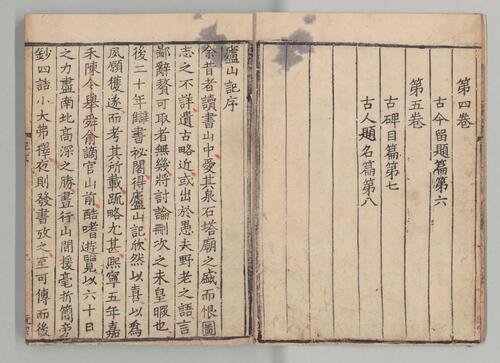 第四卷
古今留題篇第六
第五卷
古碑目篇第七
古人題名篇第八
廬山記序
余昔者讀書山中愛其泉石塔廟之盛而恨圖
志之不詳遺古略近或出於愚夫野老之語言
鄙辭贅可取者無幾將討論刪次之未皇暇也
後二十年讎書祕閣得廬山記欣然以喜以為
夙願獲遂而考其所載疏略尤甚熙寧五年嘉
禾陳令舉舜俞謫官山前酷嗜遊覽以六十日
之力盡南北高深之勝晝行山間援毫折簡旁
鈔四詰小大弗擇夜則發書攷之至可傳而後